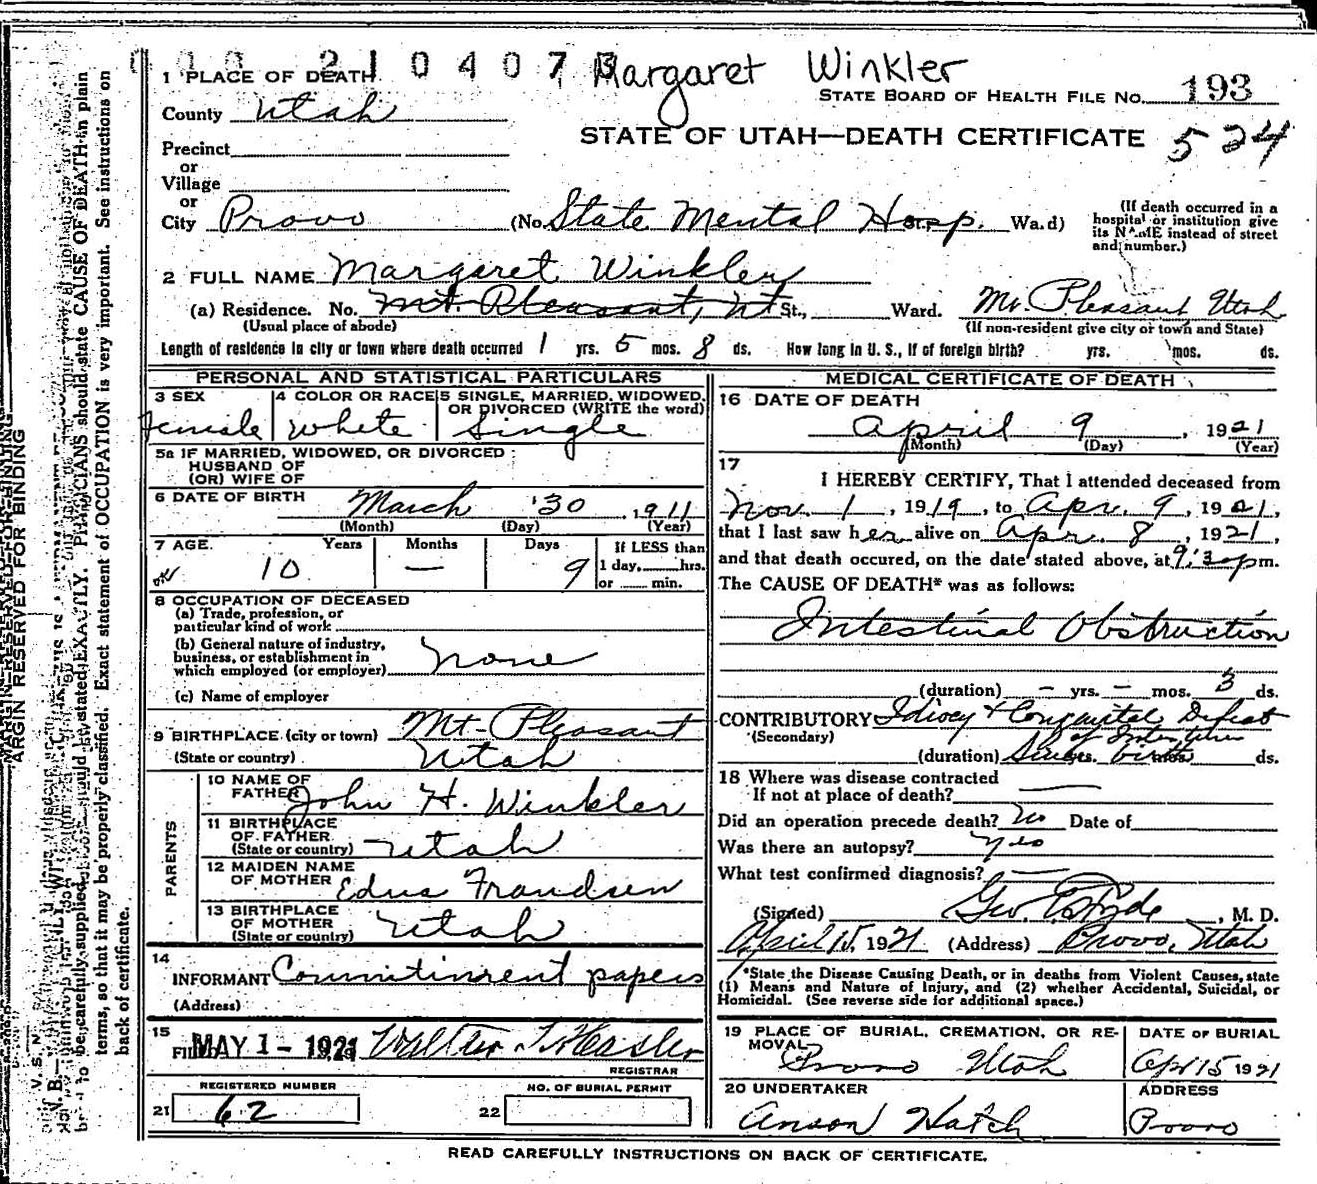 210407 Margaret Winkler
STATE BOARD OF HEALTH FILE NO. 193
524
STATE OF UTAH—DEATH CERTIFICATE
1 PLACE OF DEATH
County Utah
Precinct
or
Village
or
City Provo (No. State Mental Hosp. St., Ward)
(If death occurred in a hospital or institution give its NAME instead of street and number.)
2 FULL NAME Margaret Winkler
(a) Residence. No. Mt. Pleasant, Ut St., Ward. Mt. Pleasant Utah
(Usual place of abode) (If non-resident give city or town and State)
Length of residence in city or town where death occurred 1 yrs. 5 mos. 8 ds. How long in U. S., if of foreign birth? yrs. mos. ds.
PERSONAL AND STATISTICAL PARTICULARS
3 SEX Female
4 COLOR OR RACE White
5 SINGLE, MARRIED, WIDOWED, OR DIVORCED (WRITE the word) Single
5a IF MARRIED, WIDOWED, OR DIVORCED
HUSBAND OF
(OR) WIFE OF
6 DATE OF BIRTH March 30, 1911
(Month) (Day) (Year)
7 AGE. Years Months Days If LESS than
10 — 9 1 day, hrs.
or min.
8 OCCUPATION OF DECEASED
(a) Trade, profession, or
particular kind of work
(b) General nature of industry,
business, or establishment in
which employed (or employer) none
(c) Name of employer
9 BIRTHPLACE (city or town) Mt. Pleasant
(State or country) Utah
PARENTS
10 NAME OF FATHER John H. Winkler
11 BIRTHPLACE OF FATHER (State or country) Utah
12 MAIDEN NAME OF MOTHER Edna Frandsen
13 BIRTHPLACE OF MOTHER (State or country) Utah
14
INFORMANT Commitment papers
(Address)
15 FILED MAY 1 - 1921 Walter T. Hasler
REGISTRAR
REGISTERED NUMBER
21 62
NO. OF BURIAL PERMIT
22
MEDICAL CERTIFICATE OF DEATH
16 DATE OF DEATH
April 9, 1921
(Month) (Day) (Year)
17
I HEREBY CERTIFY, That I attended deceased from
Nov. 1, 1919, to Apr. 9, 1921,
that I last saw her alive on Apr. 8, 1921,
and that death occured, on the date stated above, at 9:30 pm.
The CAUSE OF DEATH* was as follows:
Intestinal Obstruction
(duration) — yrs. — mos. 3 ds.
CONTRIBUTORY Idiocy + Congenital Defect
(Secondary) of
(duration) Since birth ds.
18 Where was disease contracted
If not at place of death? —
Did an operation precede death? No Date of
Was there an autopsy? Yes
What test confirmed diagnosis? —
(Signed) Geo. E. Hyde, M. D.
April 15, 1921 (Address) Provo, Utah
*State the Disease Causing Death, or in deaths from Violent Causes, state
(1) Means and Nature of Injury, and (2) whether Accidental, Suicidal, or
Homicidal. (See reverse side for additional space.)
19 PLACE OF BURIAL, CREMATION, OR REMOVAL
Provo Utah
DATE OF BURIAL
Apr 15 1921
20 UNDERTAKER
Anson Hatch
ADDRESS
Provo
READ CAREFULLY INSTRUCTIONS ON BACK OF CERTIFICATE.
MARGIN RESERVED FOR BINDING
be carefully supplied. AGE should be stated EXACTLY. PHYSICIANS should state CAUSE OF DEATH in plain
terms, so that it may be properly classified. Exact statement of OCCUPATION is very important. See instructions on
back of certificate.